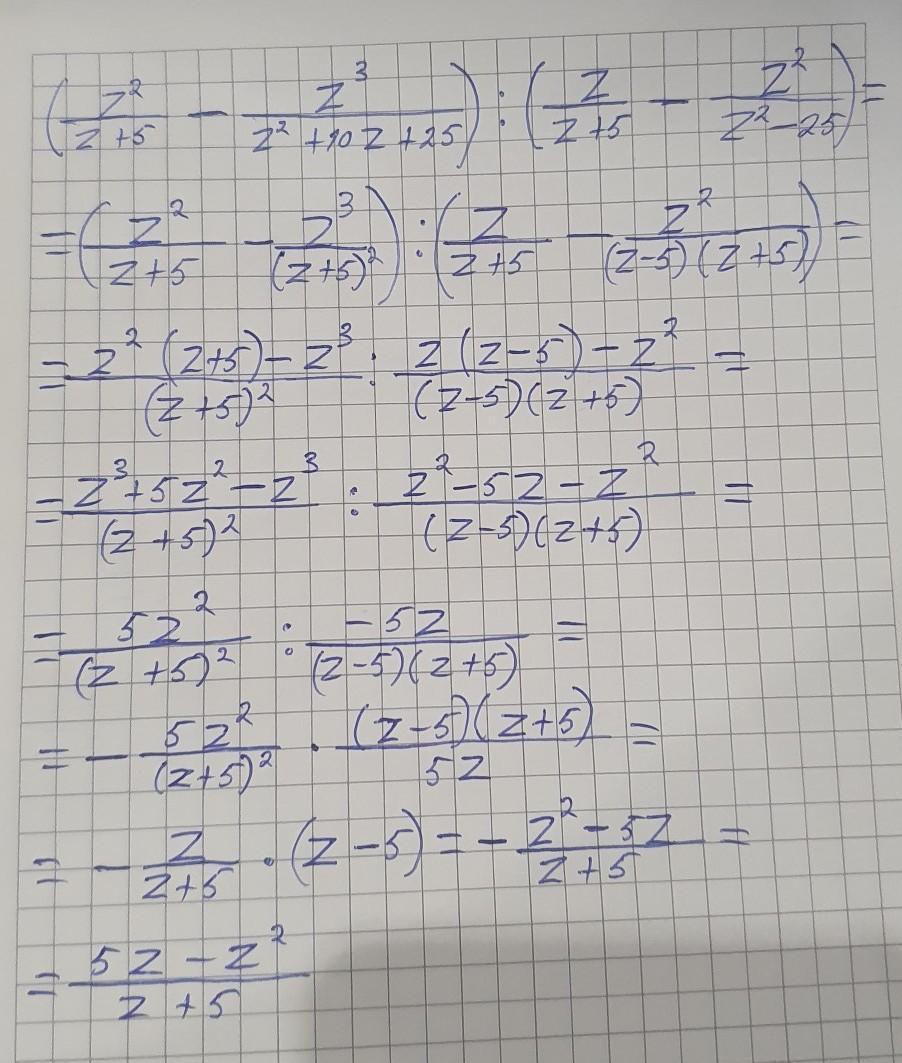 (z²/(z+5) - z³/(z²+10z+25)) : (z/(z+5) - z²/(z²-25)) =
= (z²/(z+5) - z³/(z+5)²) : (z/(z+5) - z²/((z-5)(z+5))) =
= (z²(z+5)-z³)/(z+5)² : (z(z-5)-z²)/((z-5)(z+5)) =
= (z³+5z²-z³)/(z+5)² : (z²-5z-z²)/((z-5)(z+5)) =
= 5z²/(z+5)² : -5z/((z-5)(z+5)) =
= - 5z²/(z+5)² · ((z-5)(z+5))/5z =
= - z/(z+5) · (z-5) = - (z²-5z)/(z+5) =
= (5z-z²)/(z+5)